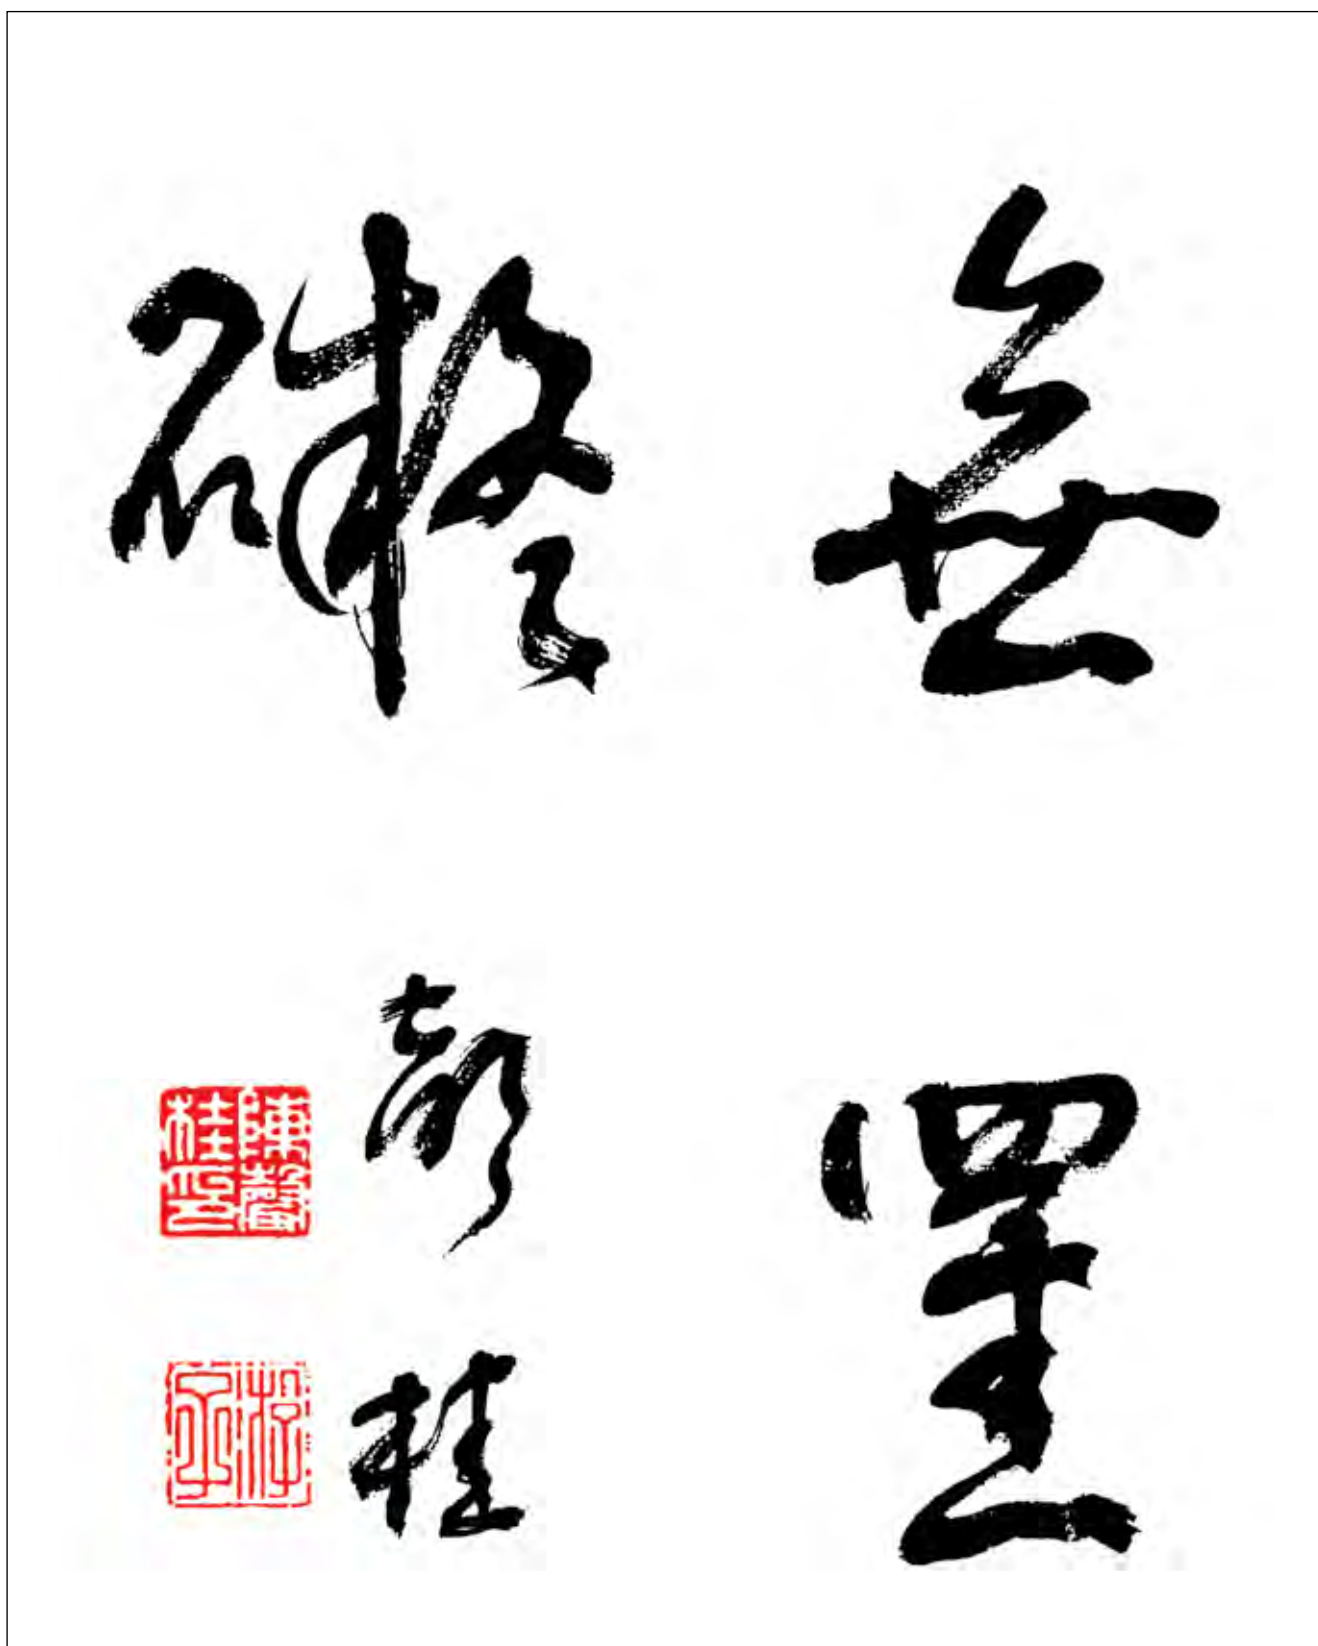 無罣
礙
馨桂
陳馨桂印